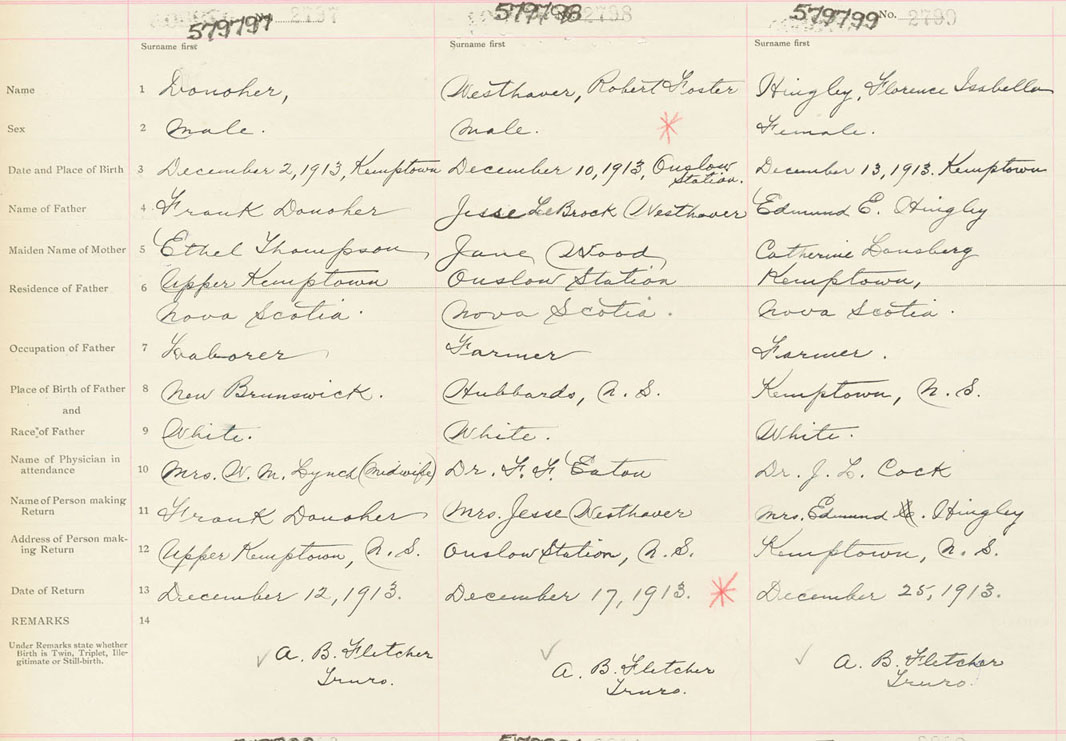 579797 No. 2797 579798 2798 579799 No. 2799
Surname first Surname first Surname first
Name 1 Donoher, Westhaver, Robert Foster Hingley, Florence Isabella
Sex 2 Male. Male. Female.
Date and Place of Birth 3 December 2, 1913, Kemptown December 10, 1913, Onslow Station. December 13, 1913. Kemptown
Name of Father 4 Frank Donoher Jesse LeBrock Westhaver Edmund E. Hingley
Maiden Name of Mother 5 Ethel Thompson Jane Wood Catherine Lansberg
Residence of Father 6 Upper Kemptown Onslow Station Kemptown,
Nova Scotia. Nova Scotia. Nova Scotia.
Occupation of Father 7 Laborer Farmer Farmer.
Place of Birth of Father 8 New Brunswick. Hubbards, N. S. Kemptown, N. S.
and
Race of Father 9 White. White. White.
Name of Physician in attendance 10 Mrs. W. M. Lynch (Midwife) Dr. F. F. Eaton Dr. J. L. Cock
Name of Person making Return 11 Frank Donoher Mrs. Jesse Westhaver Mrs. Edmund E. Hingley
Address of Person making Return 12 Upper Kemptown, N. S. Onslow Station, N. S. Kemptown, N. S.
Date of Return 13 December 12, 1913. December 17, 1913. December 25, 1913.
REMARKS 14
Under Remarks state whether
Birth is Twin, Triplet, Ille-
gitimate or Still-birth.
A. B. Fletcher A. B. Fletcher A. B. Fletcher
Truro. Truro. Truro.